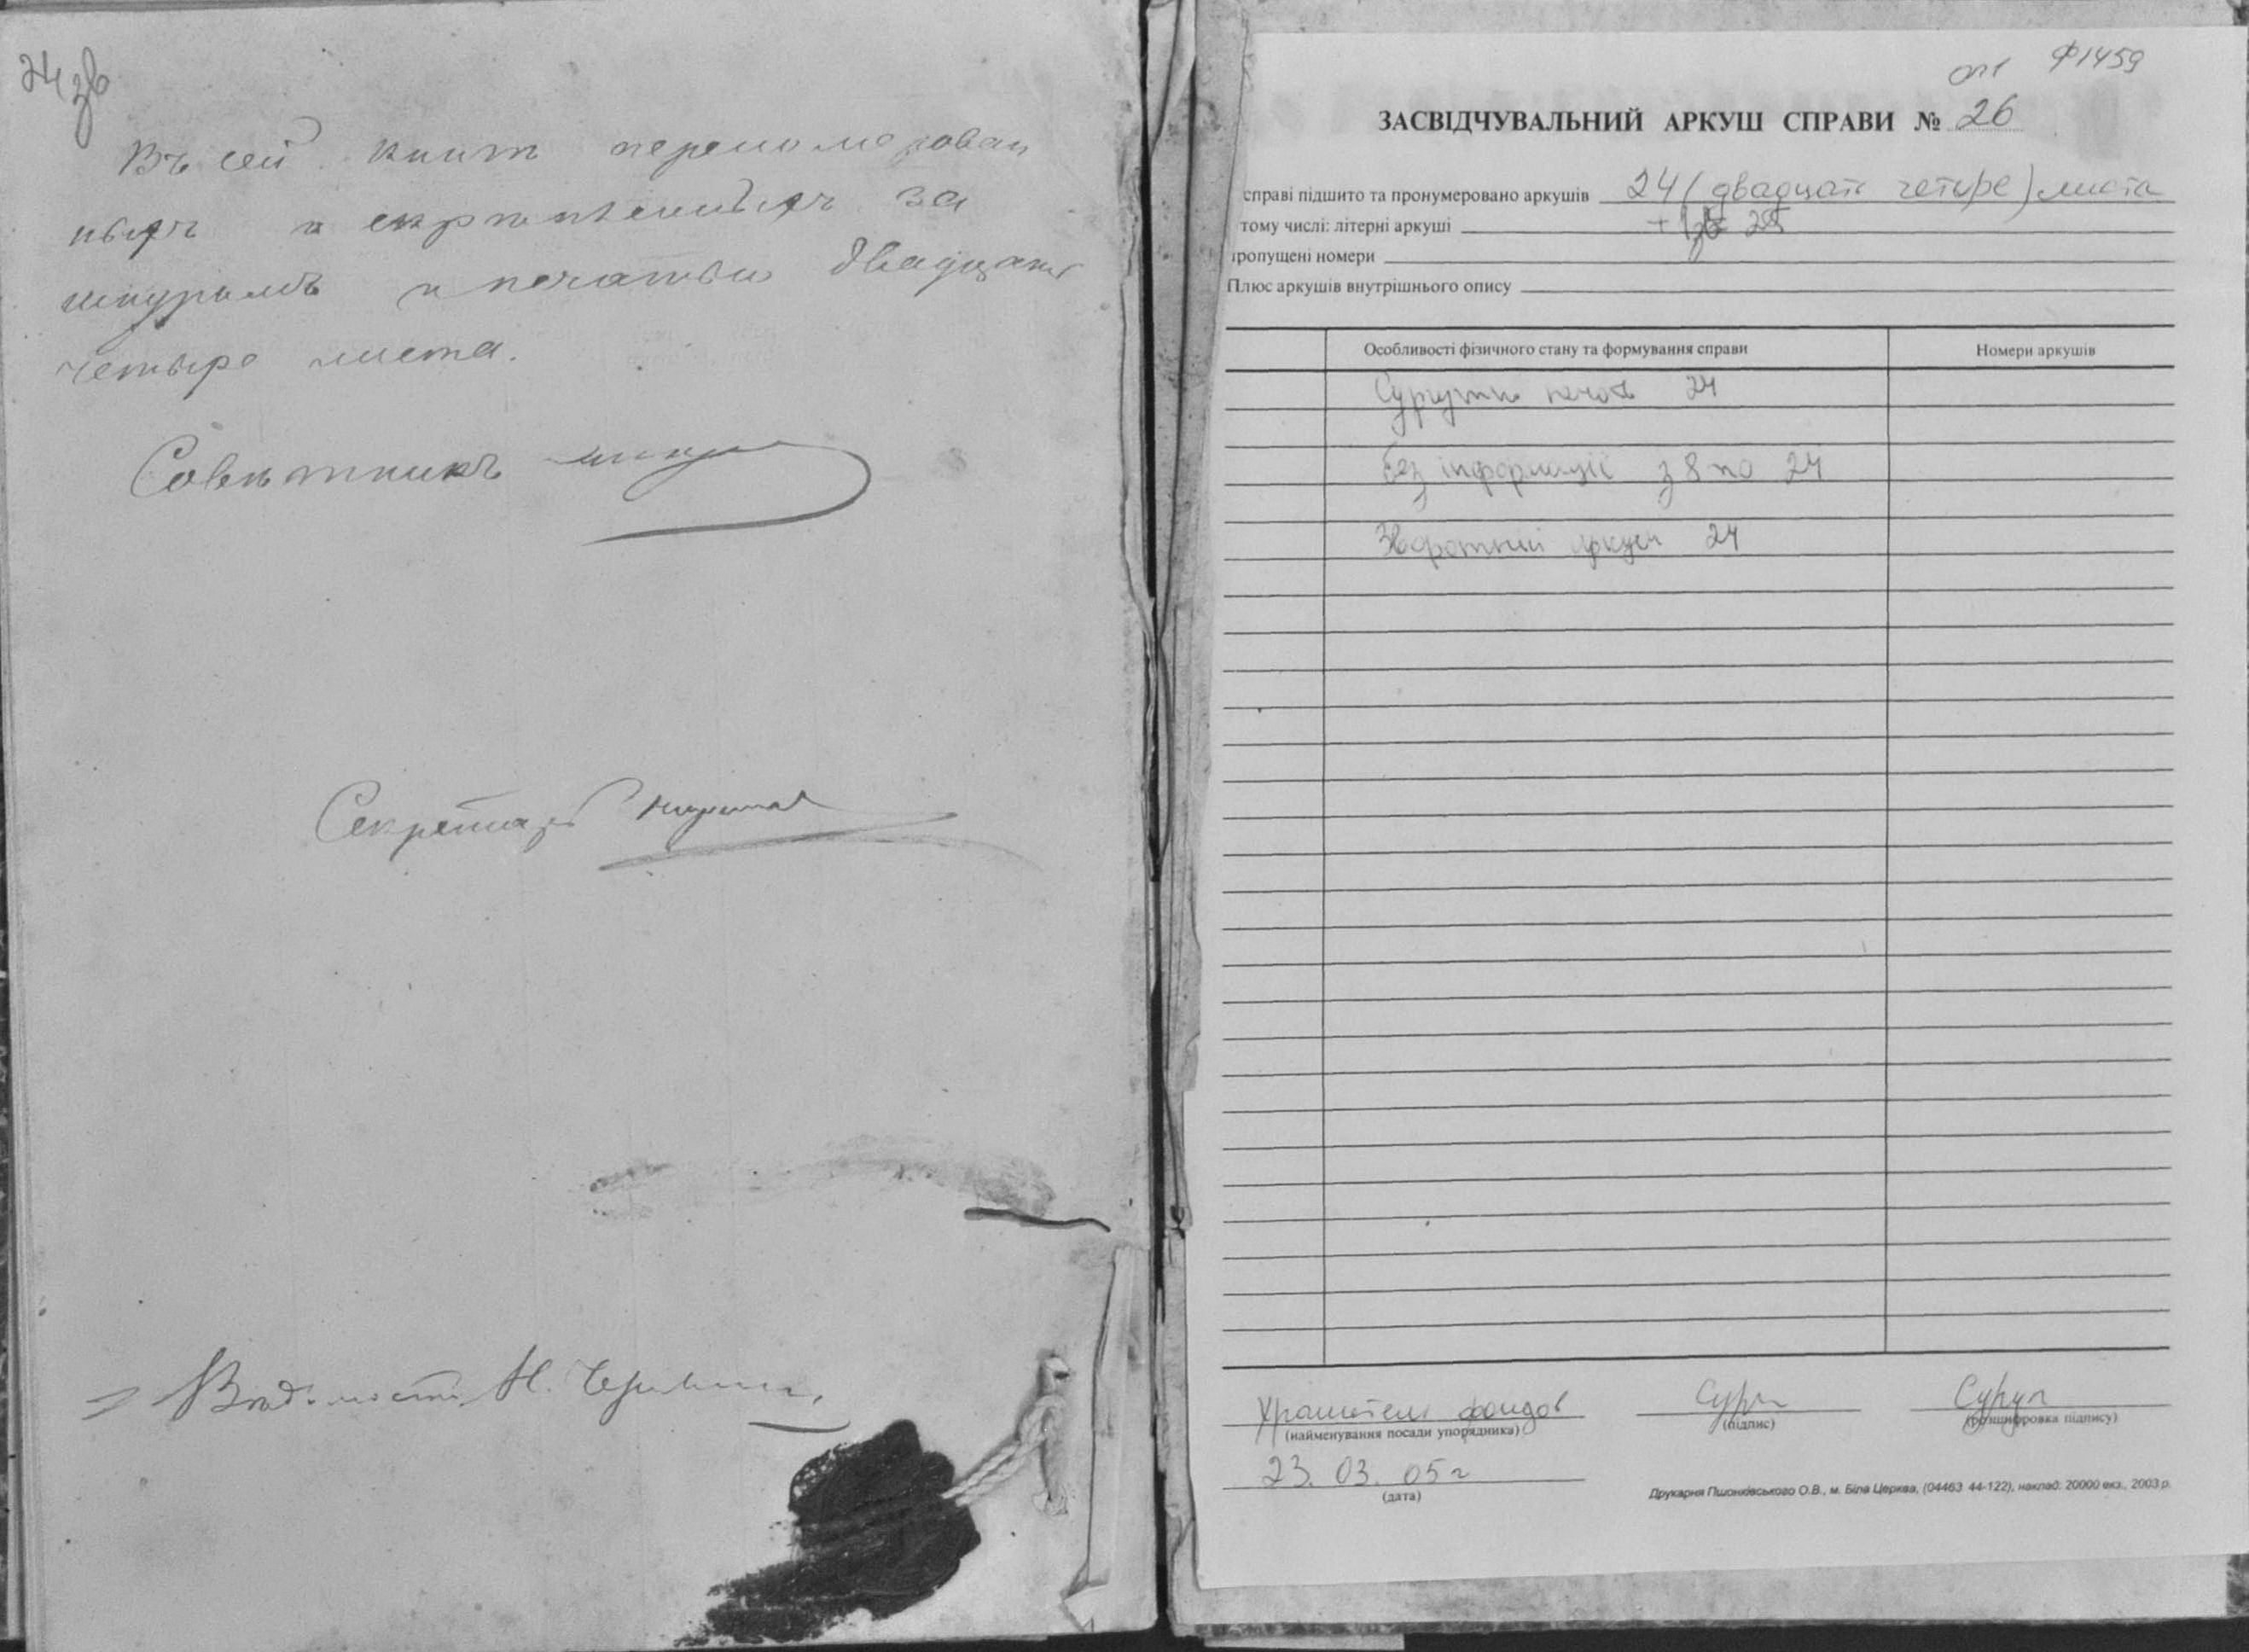 24 зв
Въ сей книгѣ перенумерован
ныхъ и скрѣпленныхъ за
шнуромъ и печатью двадцать
четыре листа.
Совѣтникъ
Секретарь
Н.
оп1 Ф1459
ЗАСВІДЧУВАЛЬНИЙ АРКУШ СПРАВИ № 26
справі підшито та пронумеровано аркушів 24 (двадцать четыре) листа
тому числі: літерні аркуші
пропущені номери
Плюс аркушів внутрішнього опису
Особливості фізичного стану та формування справи Номери аркушів
24
без інформації з 8 по 24
Зворотний аркуш 24
Хранитель фондов
(найменування посади упорядника) (підпис) (розшифровка підпису)
23. 03. 05 г
(дата)
Друкарня Пшонківського О.В., м. Біла Церква, (04463 44-122), наклад: 20000 екз., 2003 р.